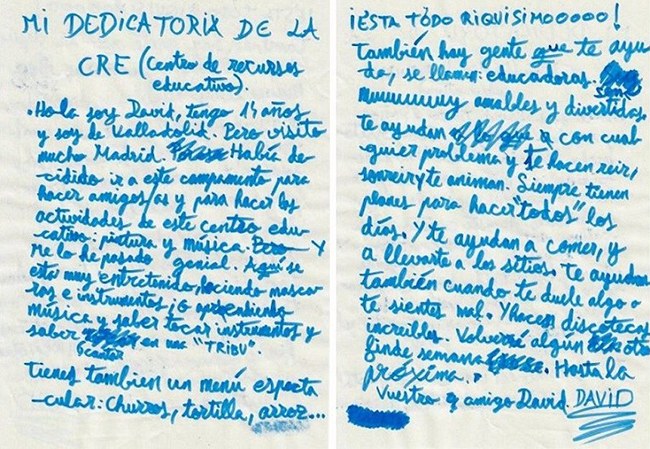 MI DEDICATORIA DE LA
CRE (centro de recursos
educativo).
• Hola soy David, tengo 14 años
y soy de Valladolid. Pero visito
mucho Madrid. Había de
cidido ir a este campamento para
hacer amigos/as y para hacer las
actividades de este centro edu-
-cativo: pintura y música. Pero y
Me lo he pasado genial. Aquí se
está muy entretenido, haciendo masca
ras e instrumentos ¡O aprendiendo
música y saber tocar instrumentos y
saber en una "TRIBU".
cantar
Tienes tambien un menú especta
-cular: Churros, tortilla, arroz...
¡ESTA TODO RIQUISIMOOOOO!
También hay gente que te ayu
da, se llaman: educadoras. Son
muuuuuuy amables y divertidas.
te ayudan a con cual
quier problema y te hacen reir,
sonreir y te animan. Siempre tienen
planes para hacer "todos" los
días. Y te ayudan a comer, y
a llevarte a los sitios. Te ayudan
también cuando te duele algo o
te sientes mal. Y hacen discotecas
increibles. Volveré algún otro
finde semana. Hasta la
próxima.
Vuestro amigo David. DAVID